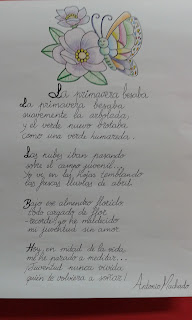 La primavera besaba
La primavera besaba
suavemente la arboleda,
y el verde nuevo brotaba
como una verde humareda.
Las nubes iban pasando
sobre el campo juvenil...
Yo vi en las hojas temblando
las frescas lluvias de abril.
Bajo ese almendro florido
todo cargado de flor
-recordé-, yo he maldecido
mi juventud sin amor.
Hoy, en mitad de la vida,
me he parado a meditar...
¡Juventud nunca vivida
quién te volviera a soñar!
Antonio Machado